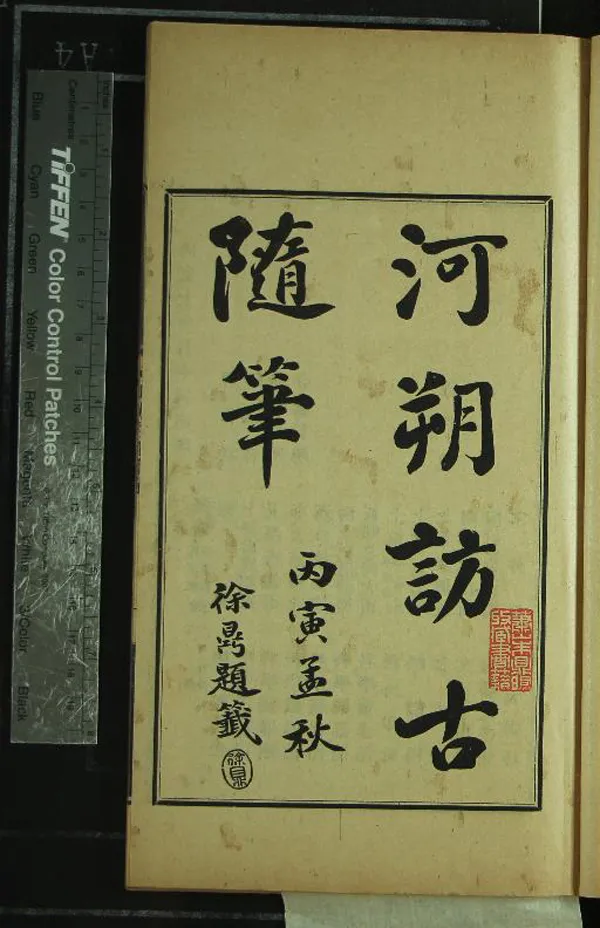 河朔訪古
隨筆
丙寅孟秋
徐鼎題籤
徐鼎
TIFFEN Color Control Patches
Blue
Cyan
Green
Yellow
Red
Magenta
White
3/Color
Black
Centimetres
Inches
A4